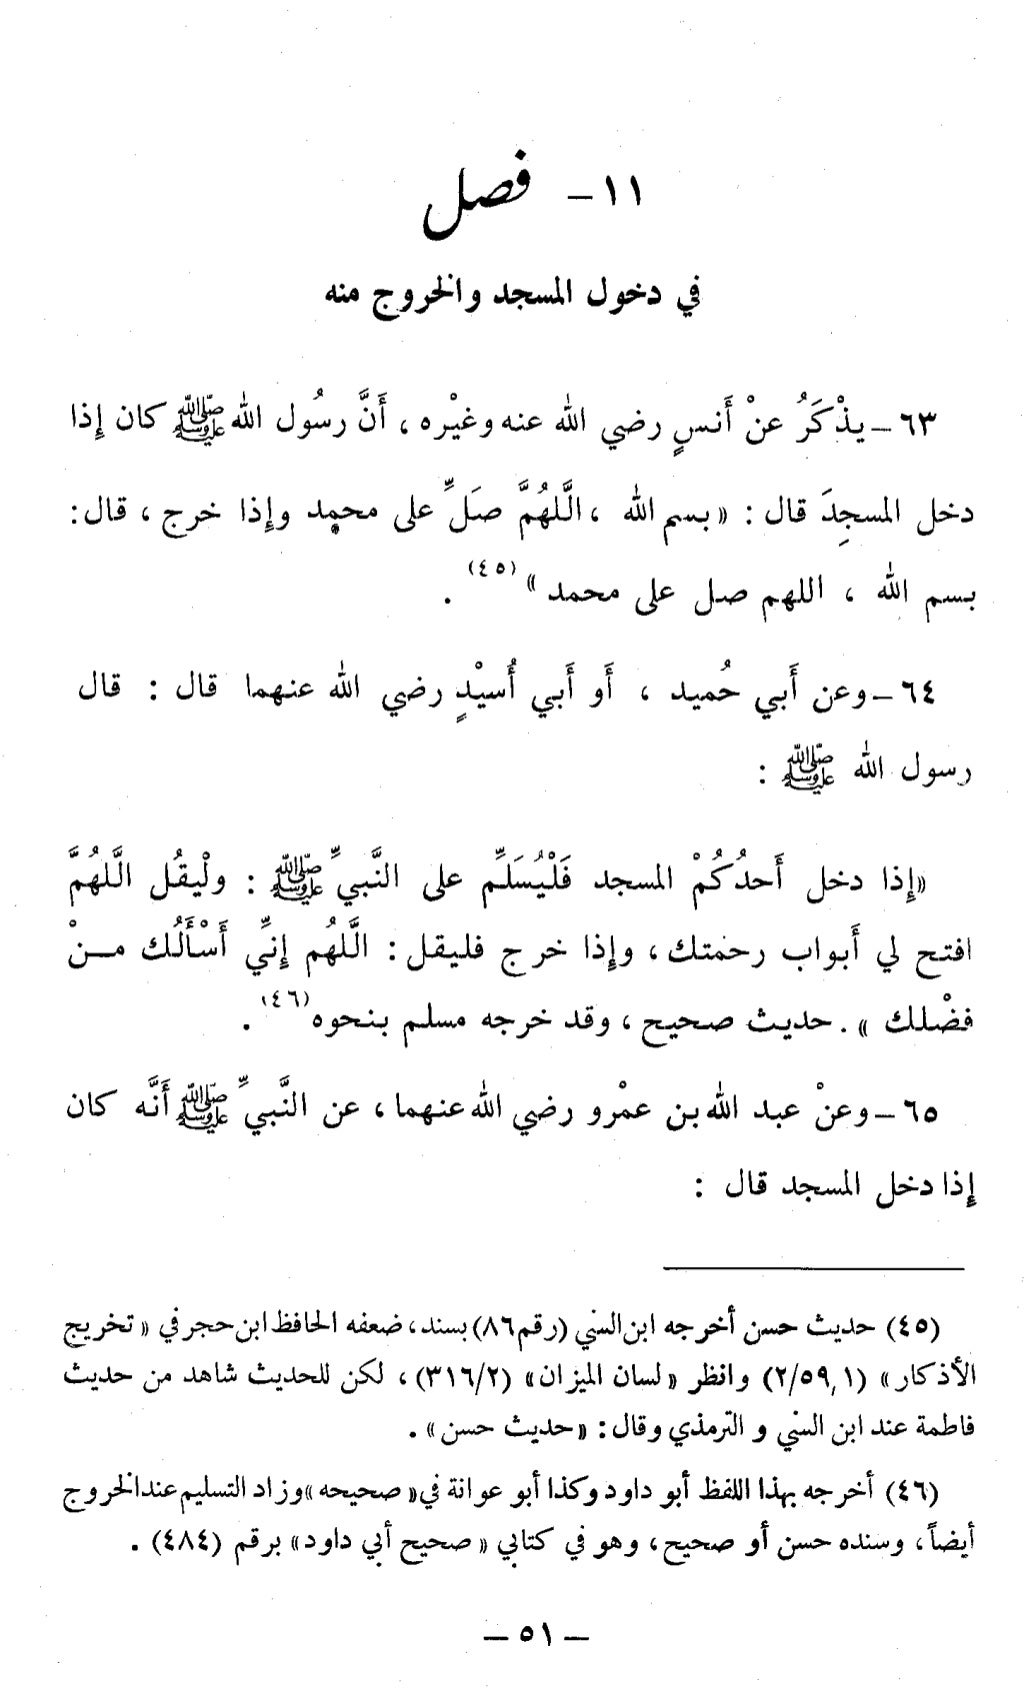 ١١ - فصل
في دخول المسجد والخروج منه
٦٣ - يذْكَرُ عنْ أَنسٍ رضي الله عنه وغيْره ، أَنَّ رسُول الله ﷺ كان إِذا
دخل المسجِدَ قال : « بسم الله ، الَّلهُمَّ صَلِّ على محمد وإِذا خرج ، قال :
بسم الله ، اللهم صل على محمد » (٤٥) .
٦٤ - وعن أَبي حُميد ، أَو أَبي أُسيْدٍ رضي الله عنهما قال : قال
رسول الله ﷺ :
« إِذا دخل أَحدُكُمْ المسجد فَلْيُسَلِّم على النَّبيِّ ﷺ : ولْيقُل الَّلهُمَّ
افتح لي أَبواب رحمتك ، وإِذا خرج فليقل : الَّلهُم إِنِّي أَسْأَلُك مـنْ
فضْلك » . حديث صحيح ، وقد خرجه مسلم بنحوه (٤٦) .
٦٥ - وعنْ عبد الله بن عمْرو رضي الله عنهما ، عن النَّبيِّ ﷺ أَنَّه كان
إِذا دخل المسجد قال :
(٤٥) حديث حسن أخرجه ابن السني (رقم ٨٦) بسند، ضعفه الحافظ ابن حجر في « تخريج
الأذكار » (٢/٥٩,١) وانظر « لسان الميزان » (٣١٦/٢) ، لكن للحديث شاهد من حديث
فاطمة عند ابن السني و الترمذي وقال : « حديث حسن » .
(٤٦) أخرجه بهذا اللفظ أبو داود وكذا أبو عوانة في « صحيحه » وزاد التسليم عند الخروج
أيضاً ، وسنده حسن أو صحيح ، وهو في كتابي « صحيح أبي داود » برقم (٤٨٤) .
— ٥١ —